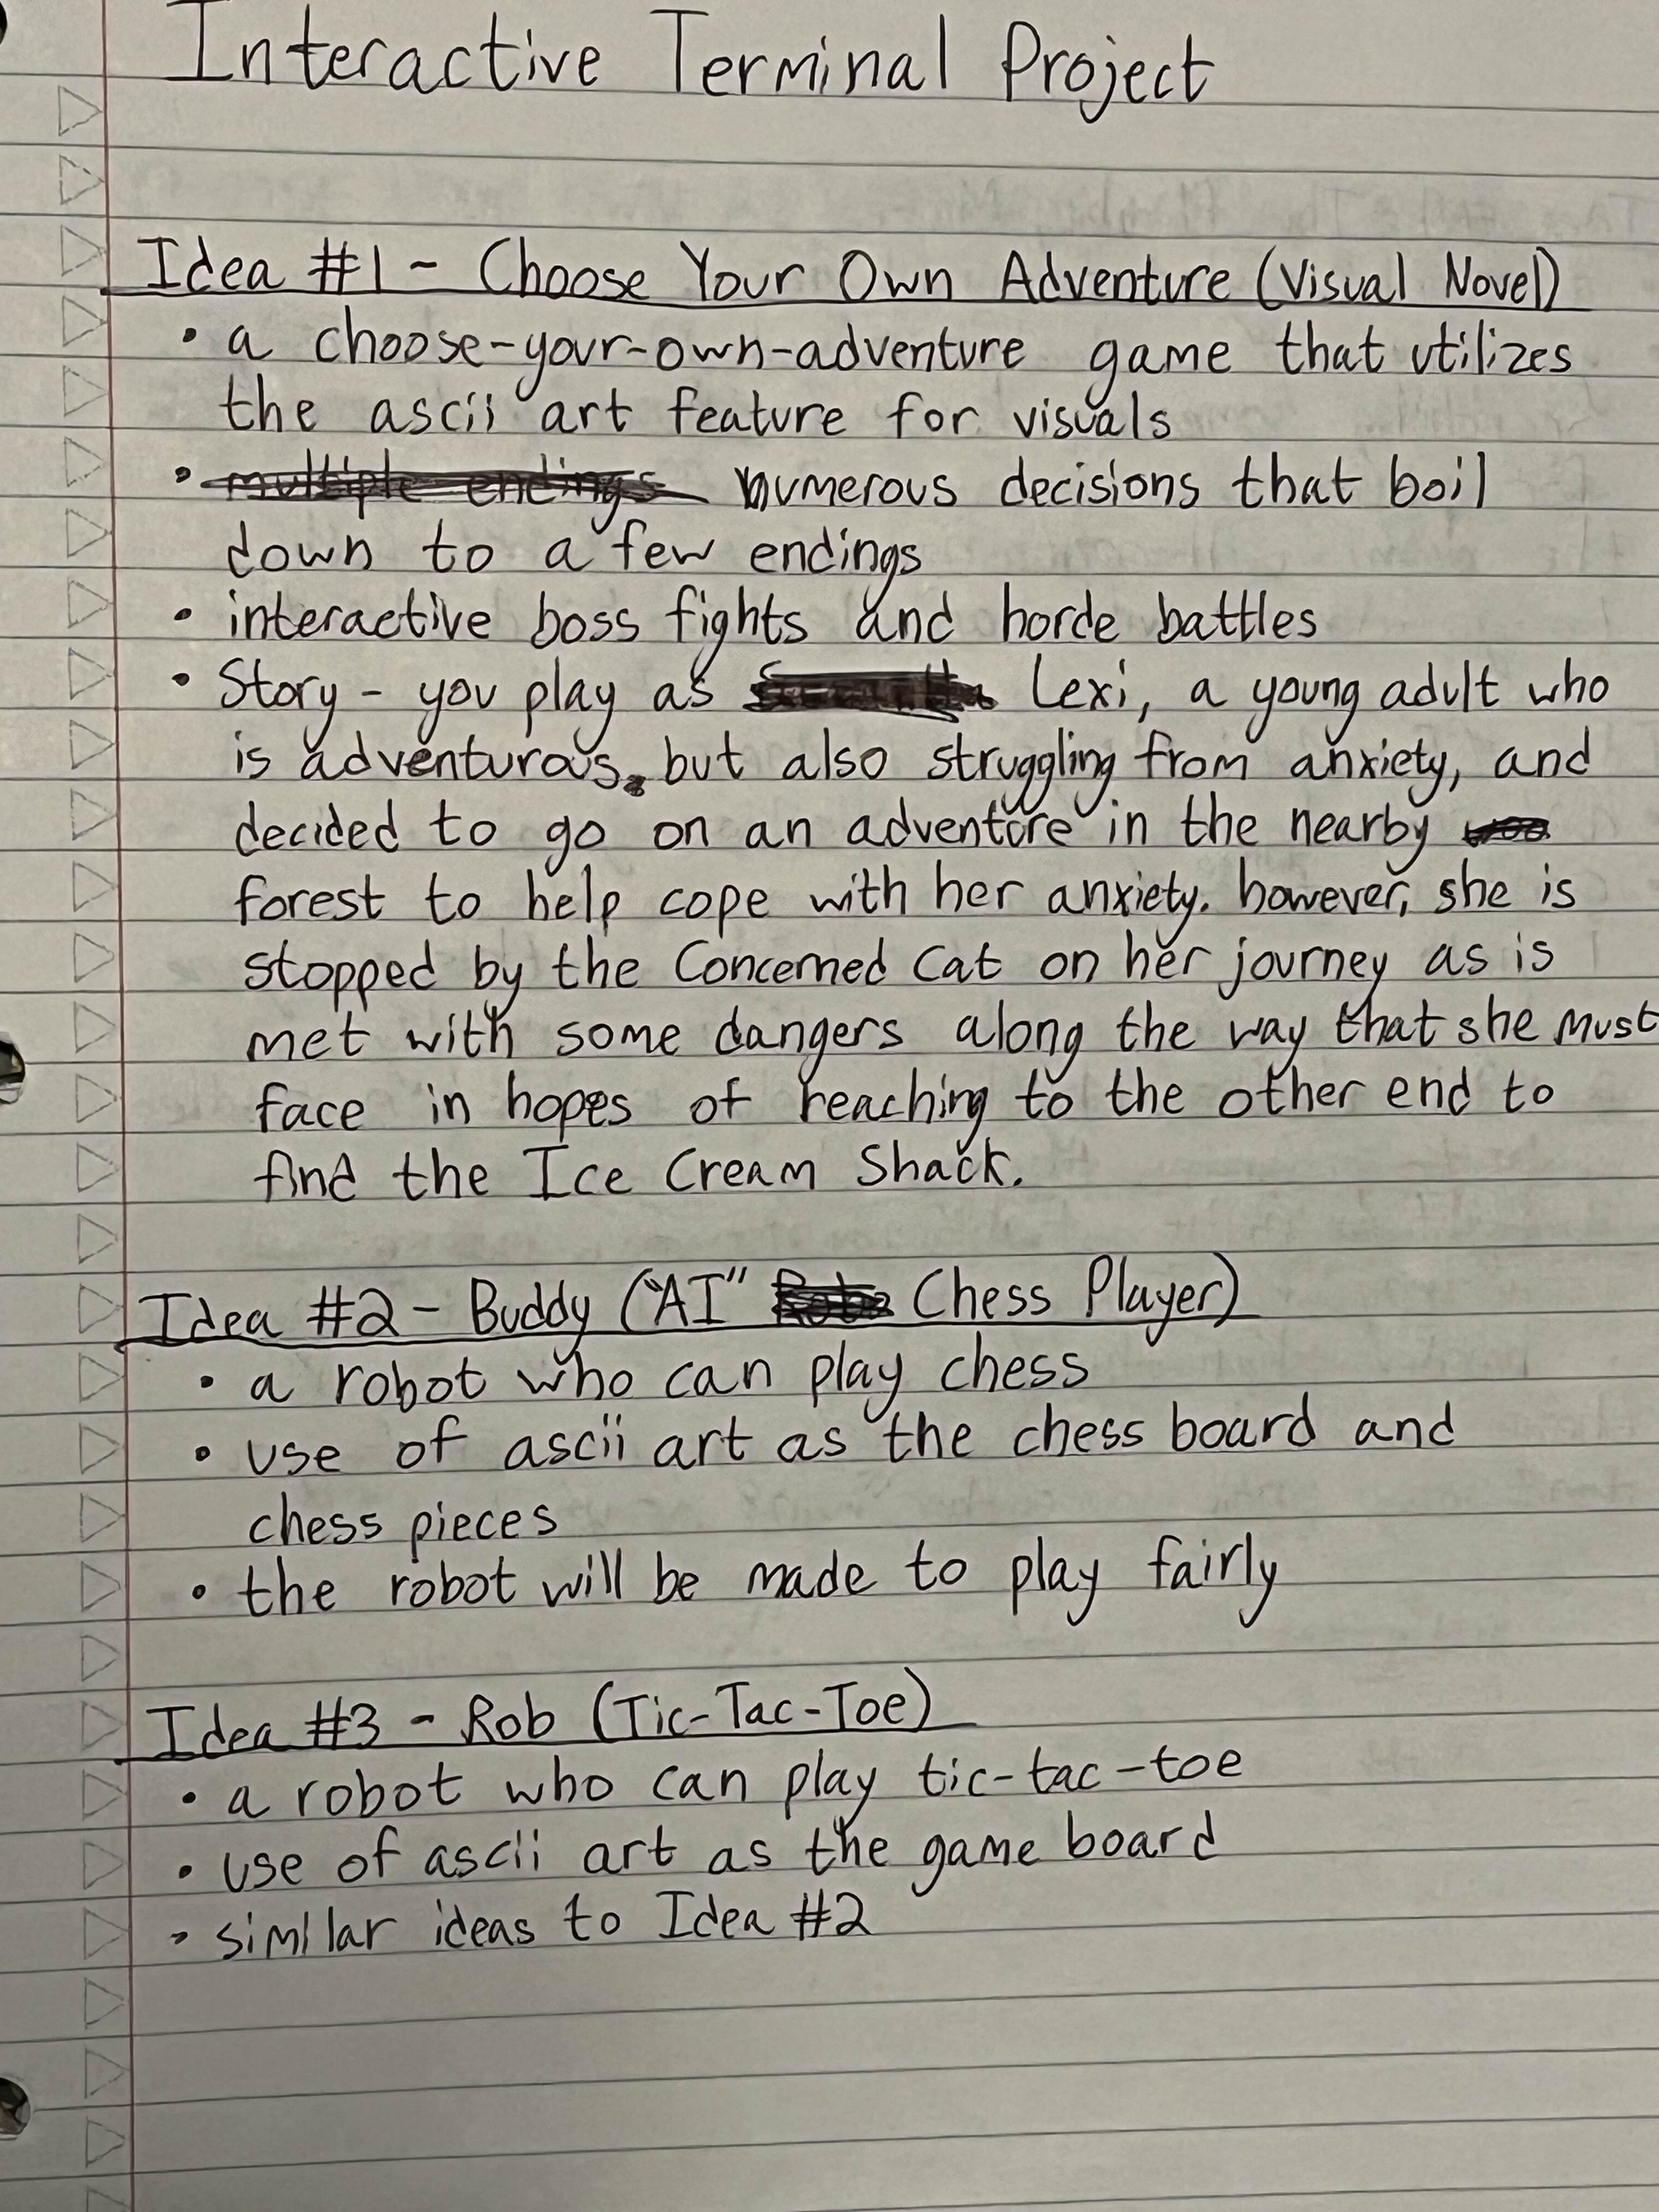 Interactive Terminal Project
Idea #1 - Choose Your Own Adventure (Visual Novel)
• a choose-your-own-adventure game that utilizes
the ascii art feature for visuals
• multiple endings numerous decisions that boil
down to a few endings
• interactive boss fights and horde battles
• Story - you play as Lexi, a young adult who
is adventurous, but also struggling from anxiety, and
decided to go on an adventure in the nearby woo
forest to help cope with her anxiety. however, she is
stopped by the Concerned Cat on her journey as is
met with some dangers along the way that she must
face in hopes of reaching to the other end to
find the Ice Cream Shack.
Idea #2 - Buddy ("AI" Chess Player)
• a robot who can play chess
• use of ascii art as the chess board and
chess pieces
• the robot will be made to play fairly
Idea #3 - Rob (Tic-Tac-Toe)
• a robot who can play tic-tac-toe
• use of ascii art as the game board
• similar ideas to Idea #2